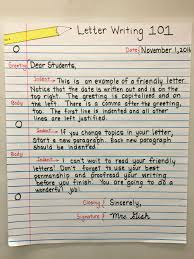 Letter Writing 101
Date: November 1, 2016
Greeting Dear Students,
Indent→ This is an example of a friendly letter.
Notice that the date is written out and is on
the top right. The greeting is capitalized and on
Body the left. There is a comma after the greeting,
too. The first line is indented and all other
lines are left justified.
Indent→ If you change topics in your letter,
Start a new paragraph. Each new paragraph
should be indented.
Body Indent→ I can't wait to read your friendly
letters! Don't forget to use your best
penmanship and proofread your writing
before you finish. You are going to do a
wonderful job!
Closing: Sincerely,
Signature: Mrs. Gish